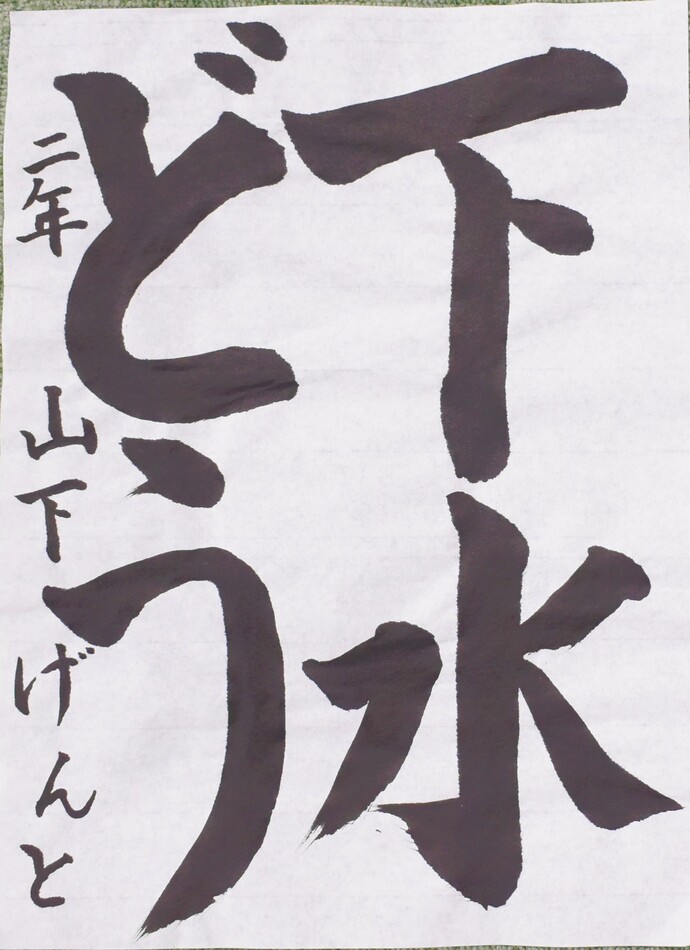 下水
どう
二年 山下げんと